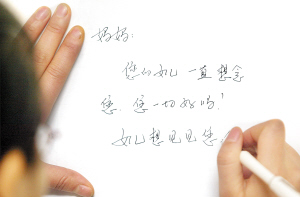 妈妈:
您的女儿一直想念
您,您一切好吗?
女儿想见见您,